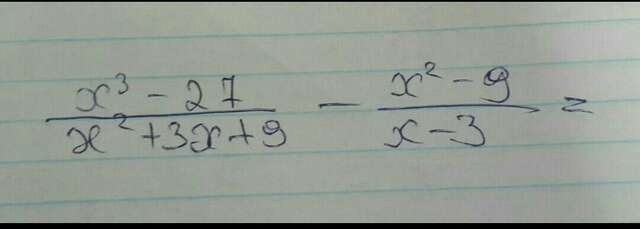 \frac{x^3 - 27}{x^2 + 3x + 9} - \frac{x^2 - 9}{x - 3} =